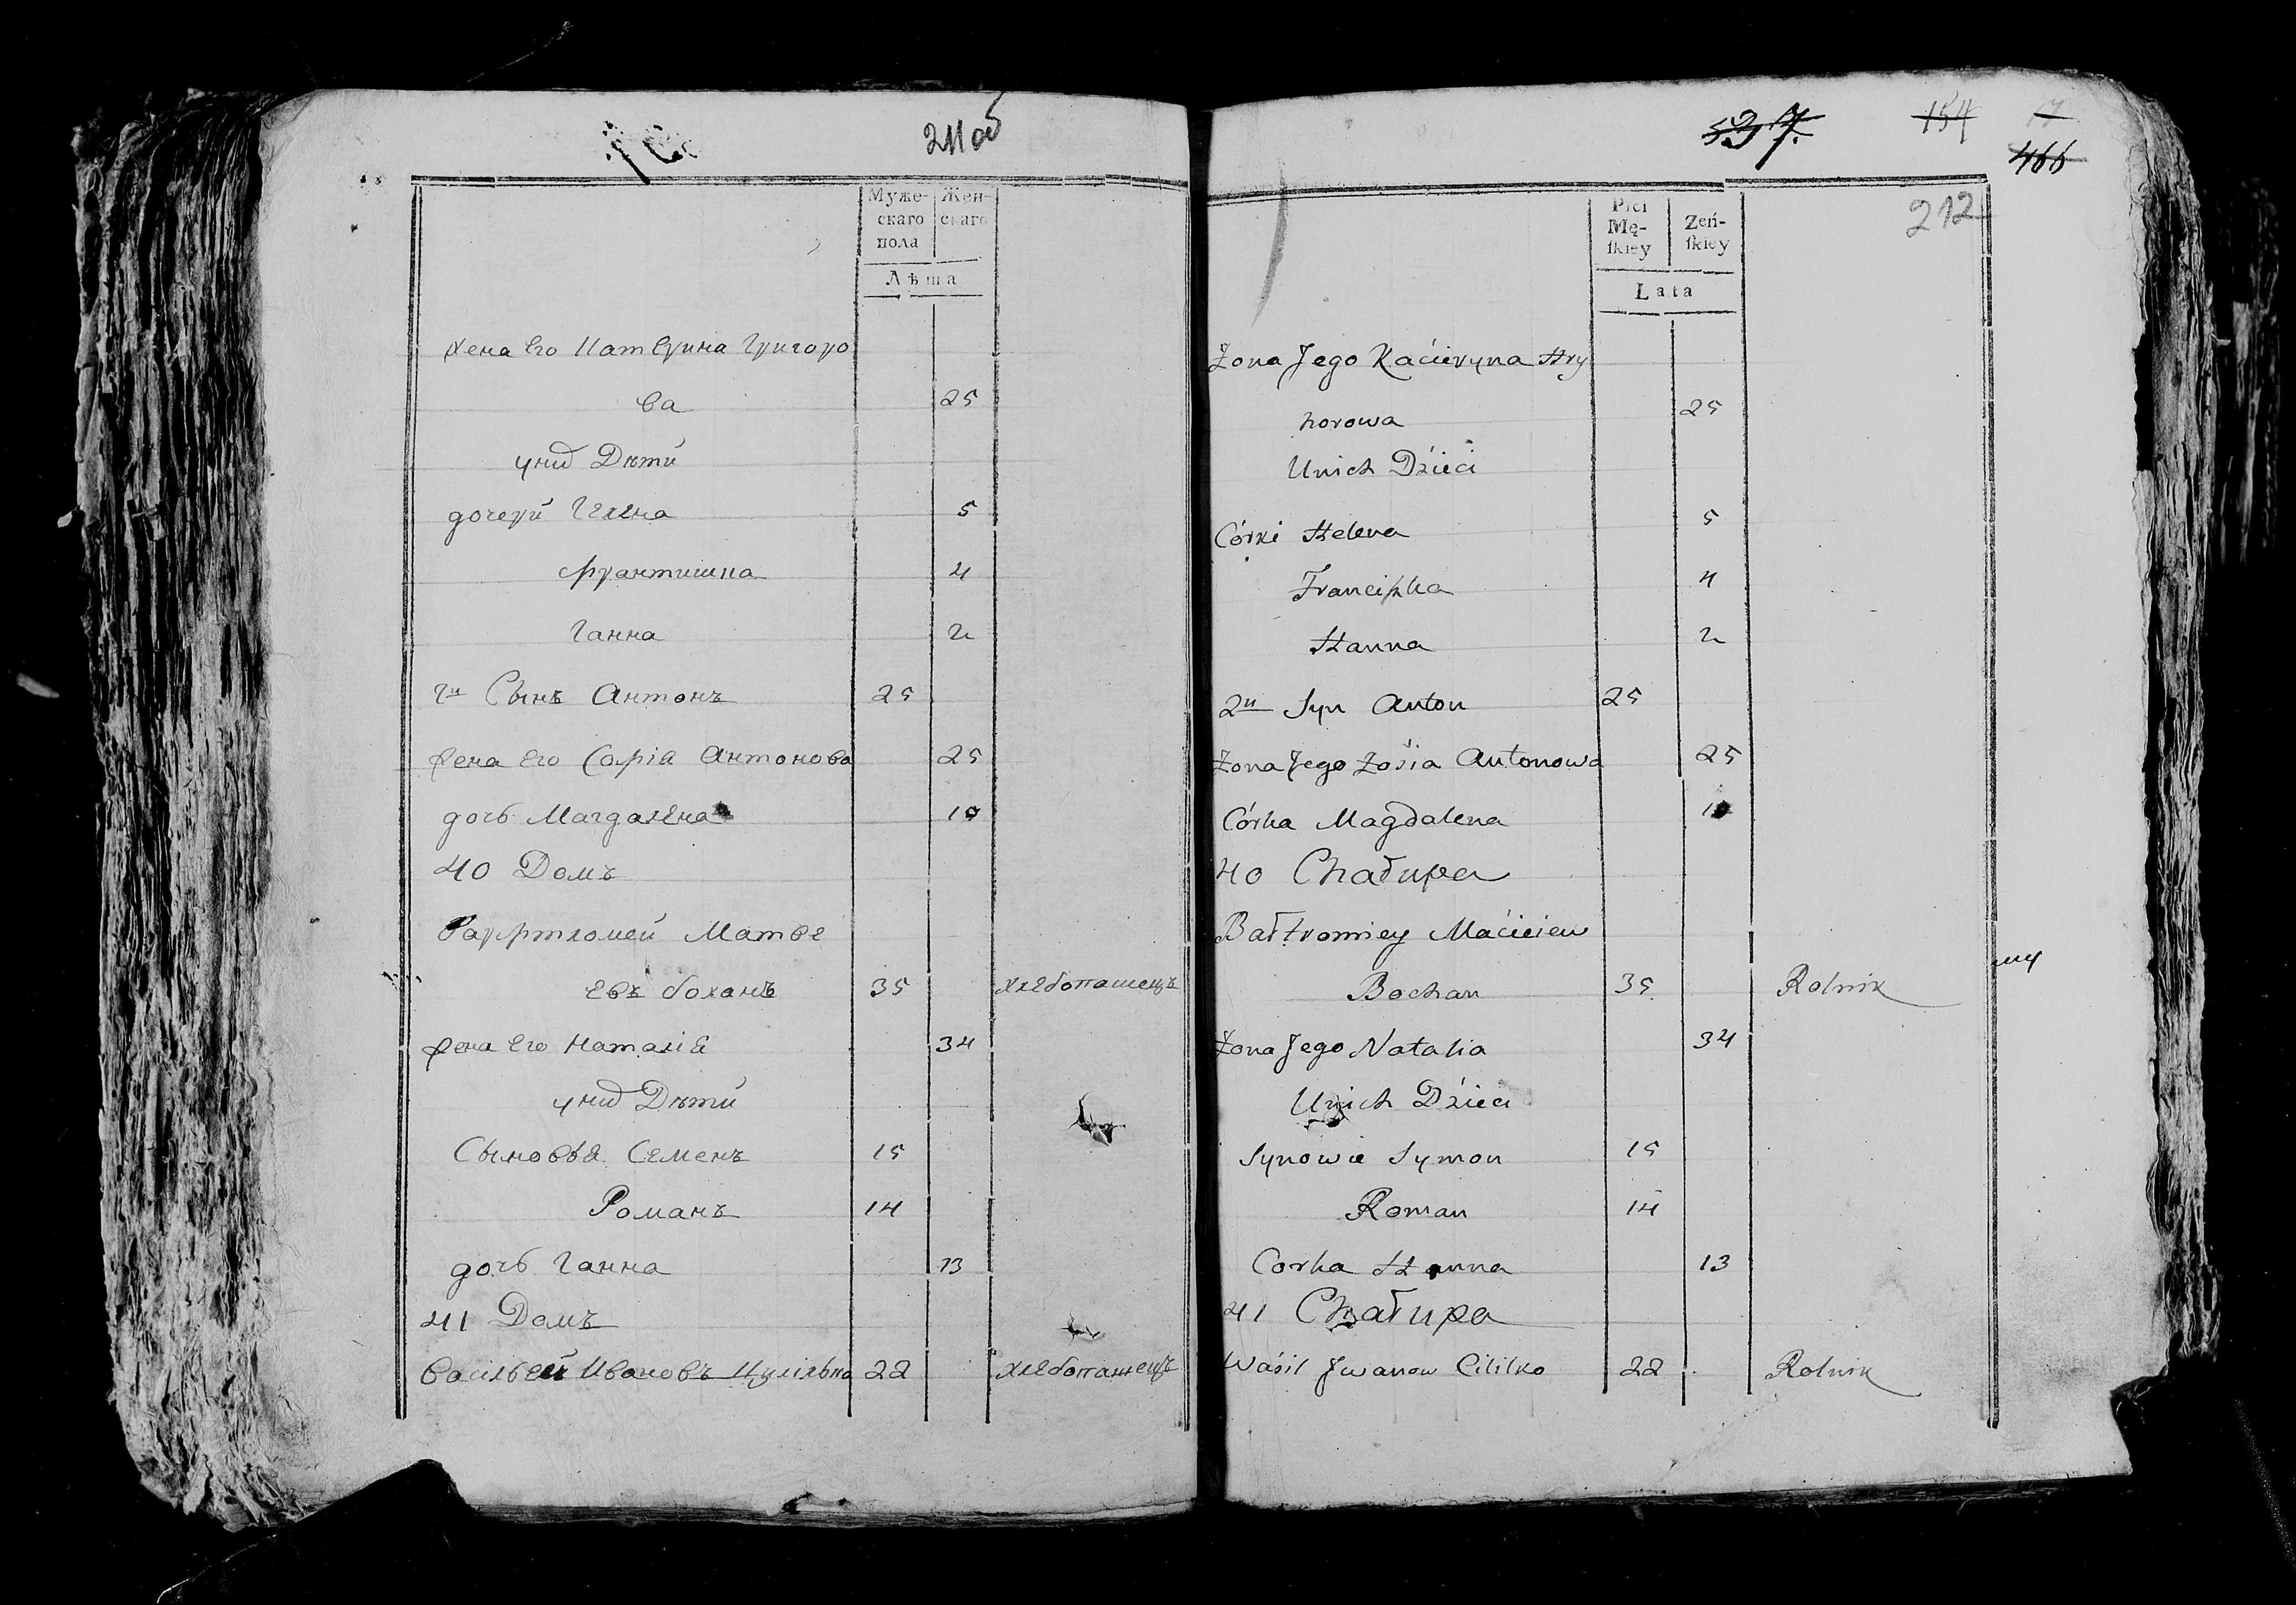 211об
Муже- Жен-
скаго скаго
пола
Лѣта
жена Его Катерина Григоро
ва 25
уних Дѣти
дочери Гелена 5
Франтишка 4
Ганна 2
2й Сынъ Антонъ 25
жена Его Софія Антонова 25
дочь Магдалена 10
40 Домъ
Варфтломей Матве
евъ боханъ 35 хлебопашецъ
жена Его Наталія 34
уних Дѣти
Сыновья Семенъ 15
Романъ 14
дочь Ганна 13
41 Домъ
Василей Ивановъ Цулілько 22 хлебопашецъ
537. 154 17
466
212
Płci
Mę- Żeń-
ſkiey ſkiey
Lata
Żona Jego Kacieryna Hry
horowa 25
Unich Dzieci
Córki Helena 5
Franciſzka 4
Hanna 2
2й Syn Anton 25
Żona Jego Zośia Antonowa 25
Córka Magdalena
40 Chałupa
Bałtromiey Macieiew
Bochan 35 Rolnik
Żona Jego Natalia 34
Unich Dzieci
Synowie Symon 15
Roman 14
Corka Hanna 13
41 Chałupa
Waśil Jwanow Cililko 22 Rolnik